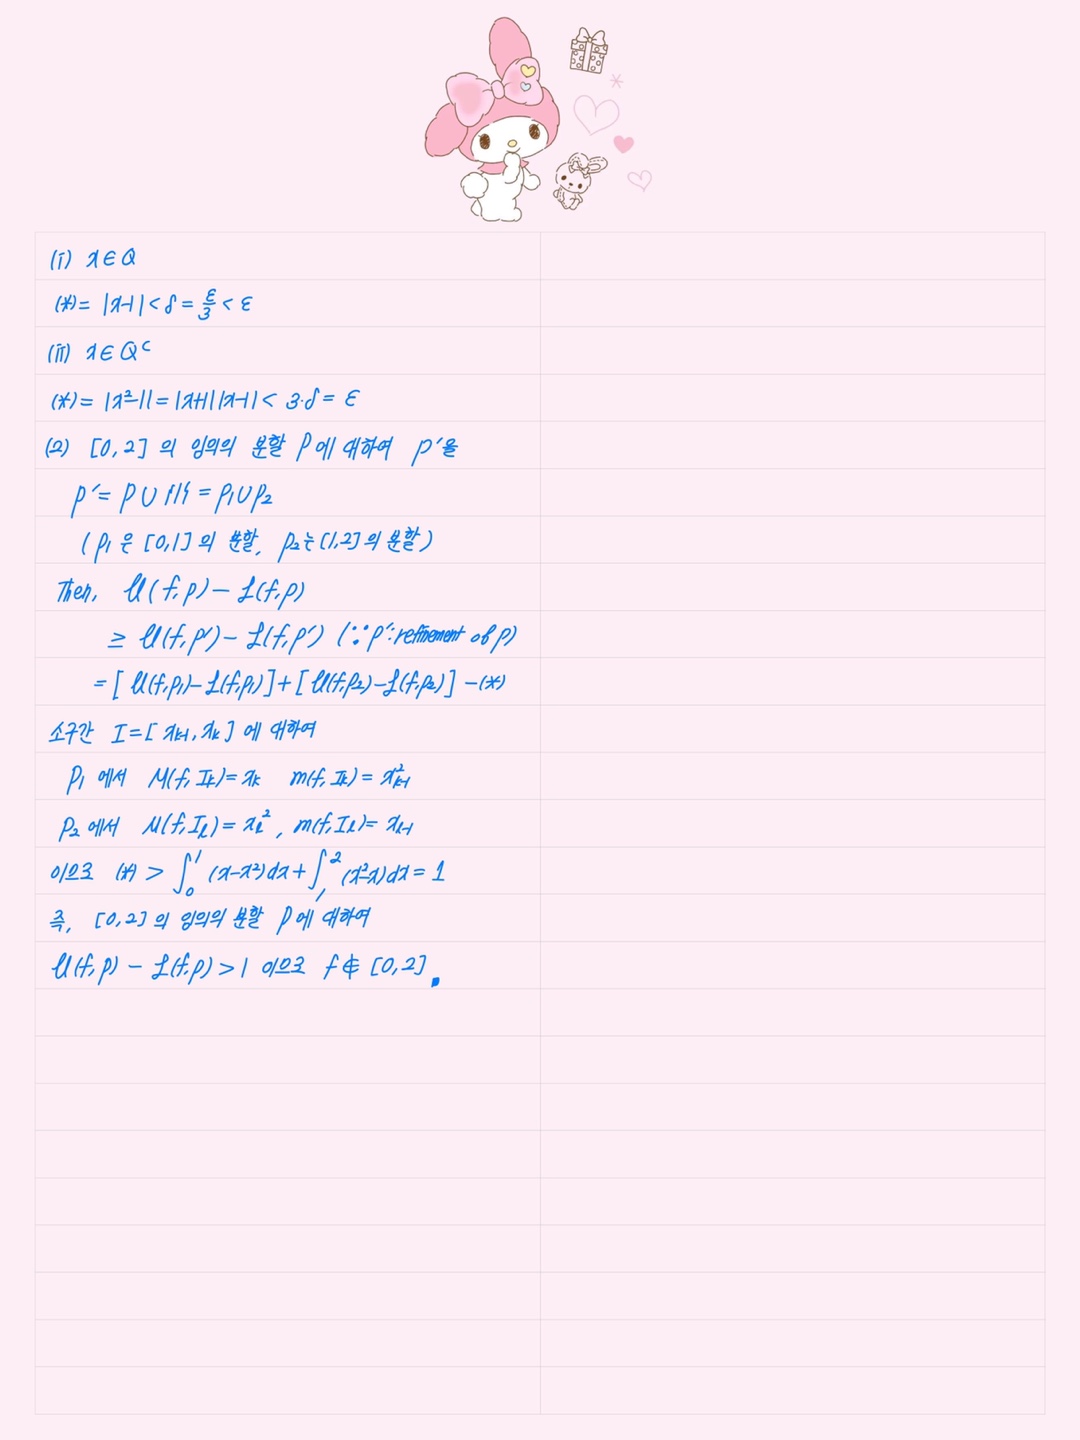 (i) x∈Q
(*)= |x-1|<δ=ε/3<ε
(ii) x∈Qᶜ
(*)= |x²-1|=|x+1||x-1|< 3·δ= ε
(2) [0,2]의 임의의 분할 P에 대하여 P'을
P'= P∪{1} = P₁∪P₂
(P₁은 [0,1]의 분할, P₂는 [1,2]의 분할)
Then, U(f,P)-L(f,P)
≥ U(f,P')-L(f,P') (∵P':refinement of P)
=[U(f,P₁)-L(f,P₁)]+[U(f,P₂)-L(f,P₂)] -(*)
소구간 I=[xₖ₋₁,xₖ]에 대하여
P₁에서 M(f,Iₖ)=xₖ m(f,Iₖ)=x²ₖ₋₁
P₂에서 M(f,Iₗ)=xₗ², m(f,Iₗ)=xₗ₋₁
이므로 (*) > ∫₀¹(x-x²)dx+∫₁²(x²-x)dx=1
즉, [0,2]의 임의의 분할 P에 대하여
U(f,P) - L(f,P)>1 이므로 f∉[0,2].